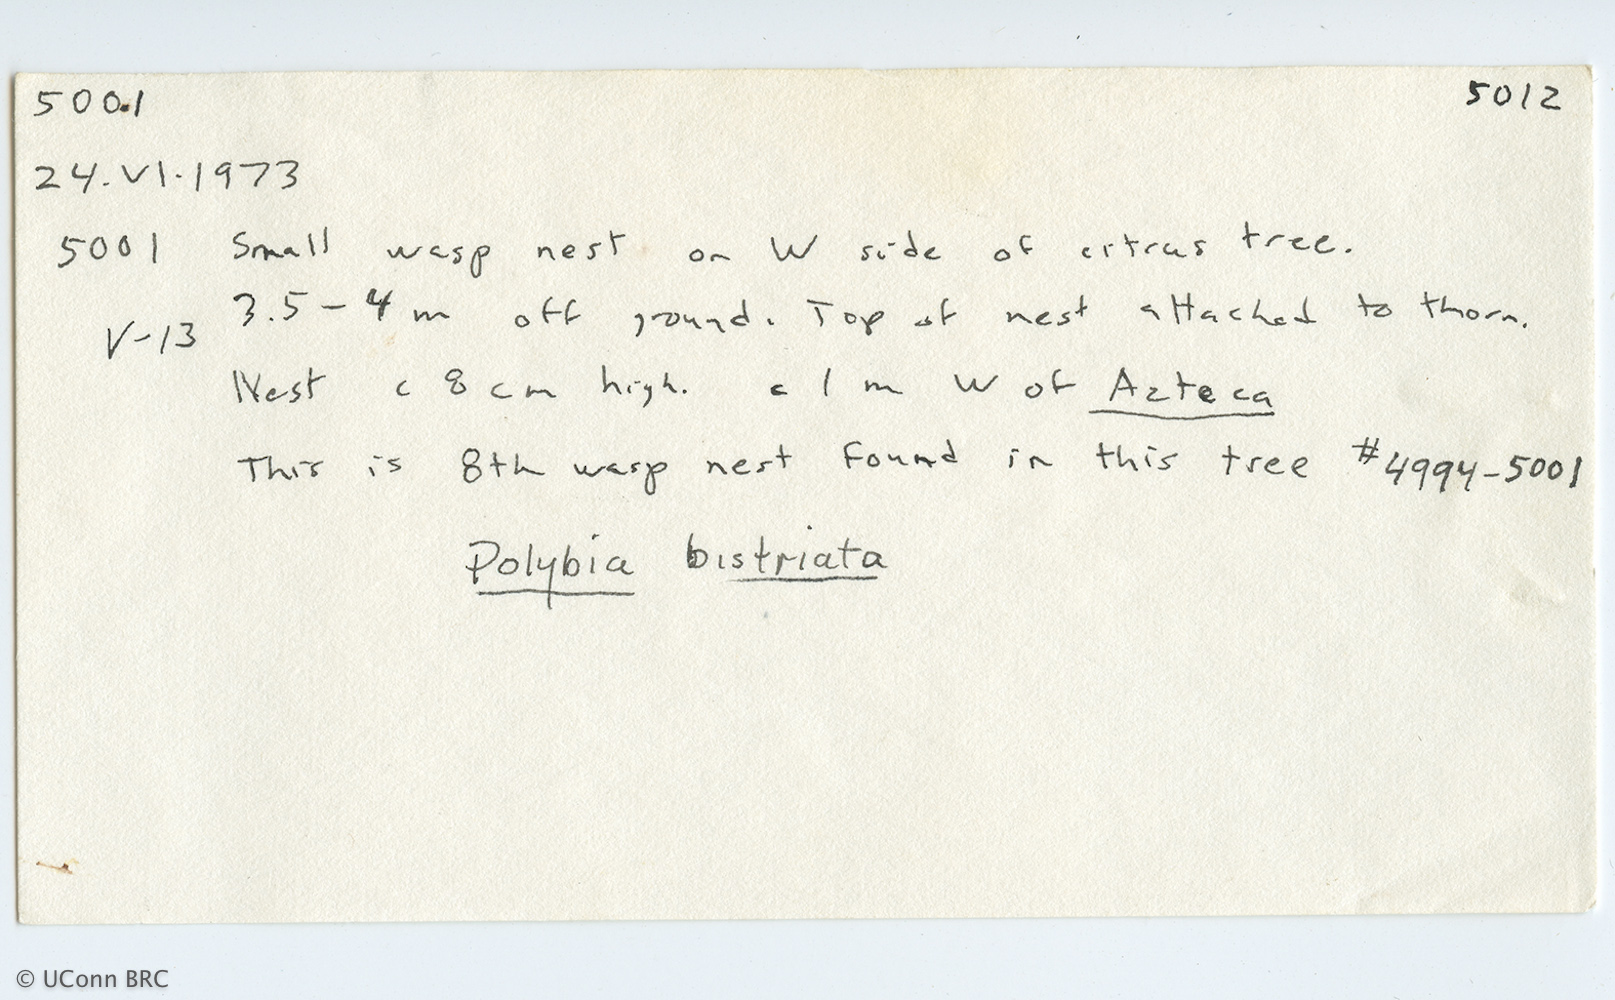 5001 5012
24.VI.1973
5001 Small wasp nest on W side of citrus tree.
3.5-4 m off ground. Top of nest attached to thorn.
V-13
Nest c 8 cm high. c 1 m W of Azteca
This is 8th wasp nest found in this tree #4994-5001
Polybia bistriata
© UConn BRC